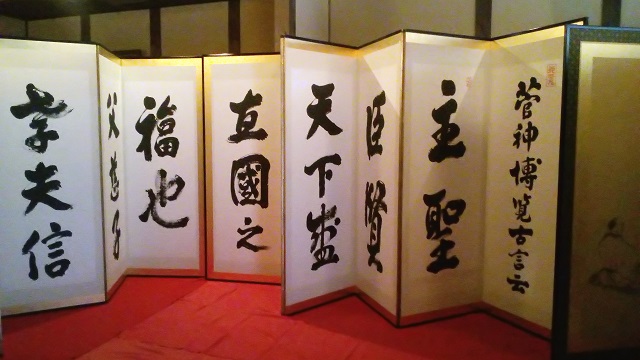 菅神博覧古言云
主聖
臣賢
天下盛
直國之
福也
父慈子
孝夫信